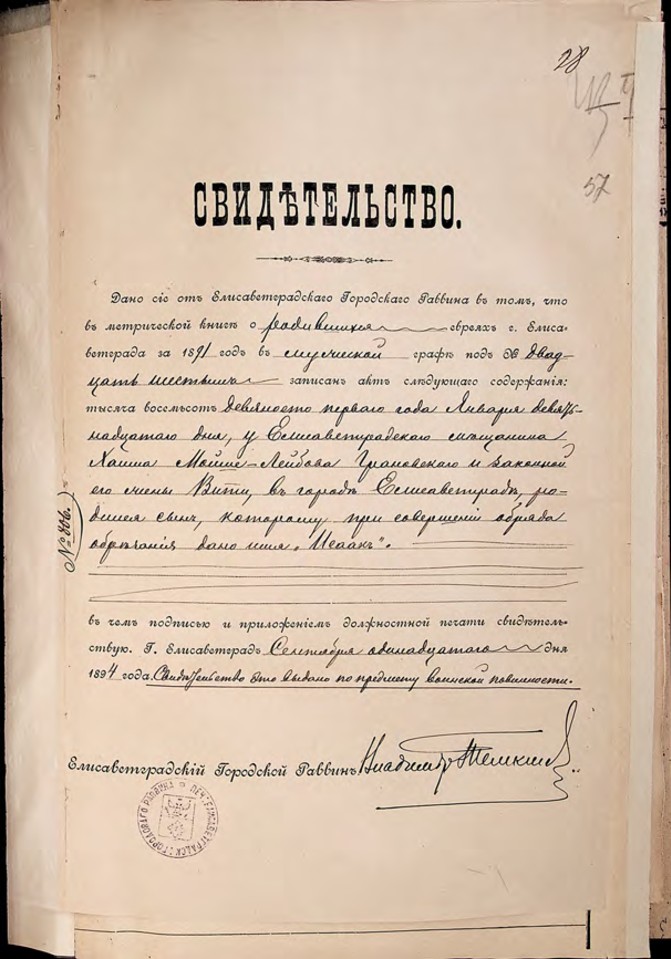 28
57
СВИДѢТЕЛЬСТВО.
Дано сіе отъ Елисаветградскаго Городскаго Раввина въ томъ, что
въ метрической книгѣ о родившихся евреяхъ г. Елиса-
ветграда за 1891 годъ въ мужеской графѣ подъ № двад-
цать шестымъ записанъ актъ слѣдующаго содержанія:
тысяча восемьсотъ девяносто перваго года Января девят-
надцатаго дня, у Елисаветградскаго мѣщанина
Хаима Мойше-Лейбова Грановскаго и законной
его жены Витти, въ городѣ Елисаветградѣ, ро-
дился сынъ, которому при совершеніи обряда
обрѣзанія дано имя „Исаакъ".
№ 806.
въ чемъ подписью и приложеніемъ должностной печати свидѣтель-
ствую. Г. Елисаветградъ Сентября одинадцатаго дня
1894 года. Свидѣтельство это выдано по предмету воинской повинности.
Елисаветградскій Городской Раввинъ Владиміръ Темкинъ
ПЕЧ. ЕЛИСАВЕТГРАДСК. ГОРОДОВАГО РАВВИНА